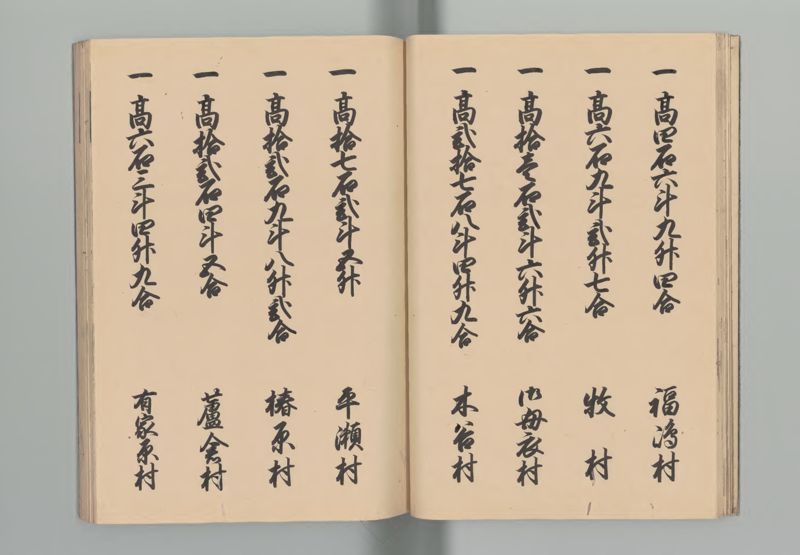 一 高四石六斗九升四合 福嶋村
一 高六石九斗弐升七合 牧村
一 高拾壱石弐斗六升六合 御母衣村
一 高弐拾七石八斗四升九合 木谷村
一 高拾七石弐斗五升 平瀬村
一 高拾弐石九斗八升弐合 椿原村
一 高拾弐石四斗五合 蘆倉村
一 高六石三斗四升九合 有家原村